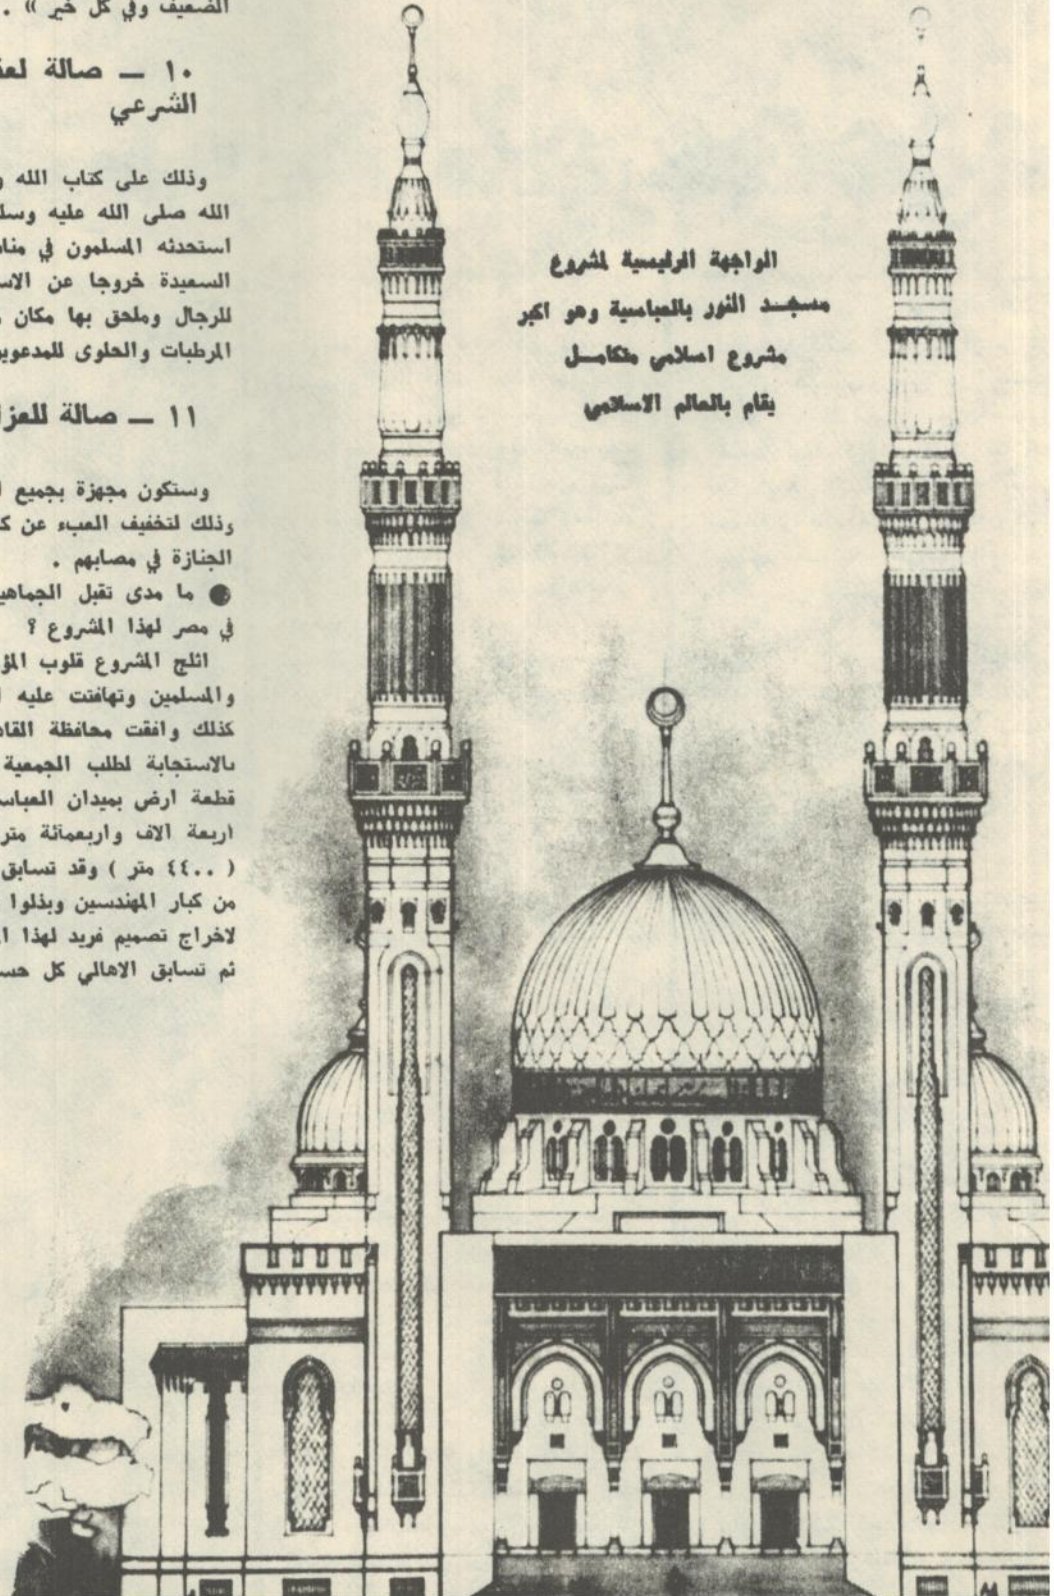 الضعيف وفي كل خير » .
١٠ ــ صالة
الشرعي
وذلك على كتاب الله
الله صلى الله عليه
استحدثه المسلمون في
السعيدة خروجا عن
للرجال وملحق بها مكان
المرطبات والحلوى
١١ ــ صالة
وستكون مجهزة بجميع
وذلك لتخفيف العبء عن
الجنازة في مصابهم .
● ما مدى تقبل
في مصر لهذا المشروع ؟
اثلج المشروع قلوب
والمسلمين وتهافتت عليه
كذلك وافقت محافظة
بالاستجابة لطلب الجمعية
قطعة ارض بميدان
اربعة آلاف واربعمائة متر
( ٤٤٠٠ متر ) وقد تسابق
من كبار المهندسين وبذلوا
لاخراج تصميم فريد لهذا
ثم تسابق الاهالي كل
الواجهة الرئيسية لمشروع
مسجد النور بالعباسية وهو اكبر
مشروع اسلامي متكامل
يقام بالعالم الاسلامي